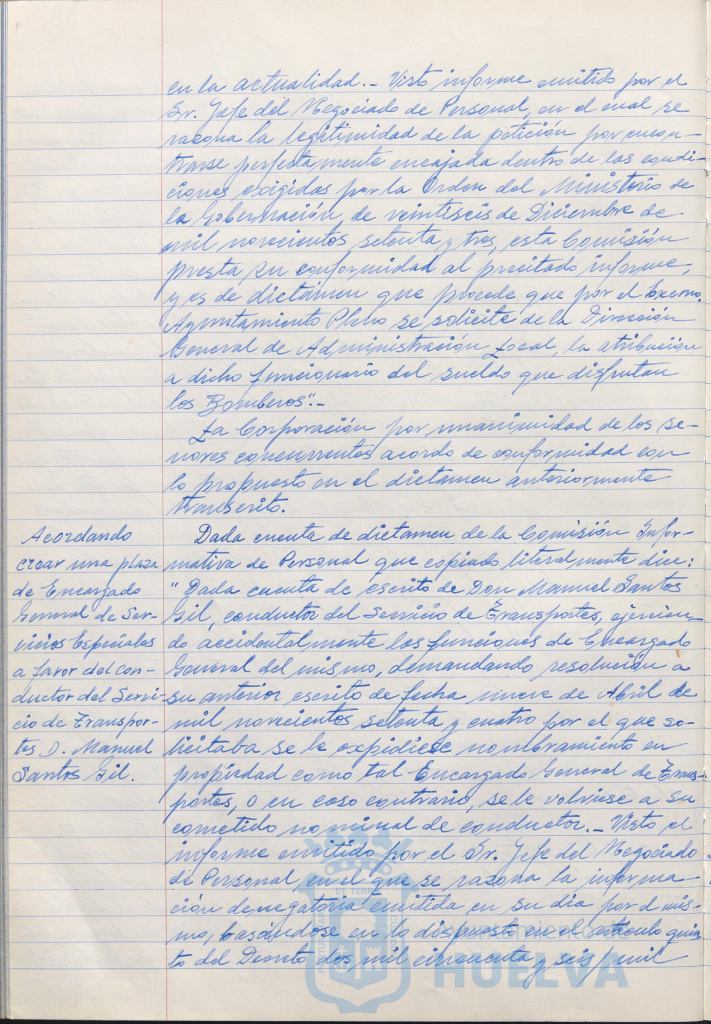 en la actualidad.- Visto informe emitido por el
Sr. Jefe del Negociado de Personal, en el cual se
razona la legitimidad de la petición por encon-
trarse perfectamente encajada dentro de las condi-
ciones exigidas por la Orden del Ministerio de
la Gobernación, de veintiseis de Diciembre de
mil novecientos setenta y tres, esta Comisión
presta su conformidad al precitado informe,
y es de dictámen que procede que por el Excmo.
Ayuntamiento Pleno se solicite de la Dirección
General de Administración Local, la atribución
a dicho funcionario del sueldo que disfrutan
los Bomberos".-
La Corporación por unanimidad de los se-
nores concurrentes acordo de conformidad con
lo propuesto en el dictamen anteriormente
transcrito.
Acordando
crear una plaza
de Encargado
General de Ser-
vicios Especiales
a favor del con-
ductor del Servi-
cio de Transpor-
tes D. Manuel
Santos Gil.
Dada cuenta de dictamen de la Comisión Infor-
mativa de Personal que copiado literalmente dice:
"Dada cuenta de escrito de Don Manuel Santos
Gil, conductor del Servicio de Transportes, ejercien-
do accidentalmente las funciones de Encargado
General del mismo, demandando resolución a
su anterior escrito de fecha nueve de Abril de
mil novecientos setenta y cuatro por el que so-
licitaba se le expidiese nombramiento en
propiedad como tal Encargado General de Trans-
portes, o en caso contrario, se le volviese a su
cometido nominal de conductor.- Visto el
informe emitido por el Sr. Jefe del Negociado
de Personal en el que se razona la informa-
ción denegatoria emitida en su dia por el mis-
mo, basándose en lo dispuesto en el articulo quin-
to del Decreto dos mil cincuenta y seis/mil
HUELVA